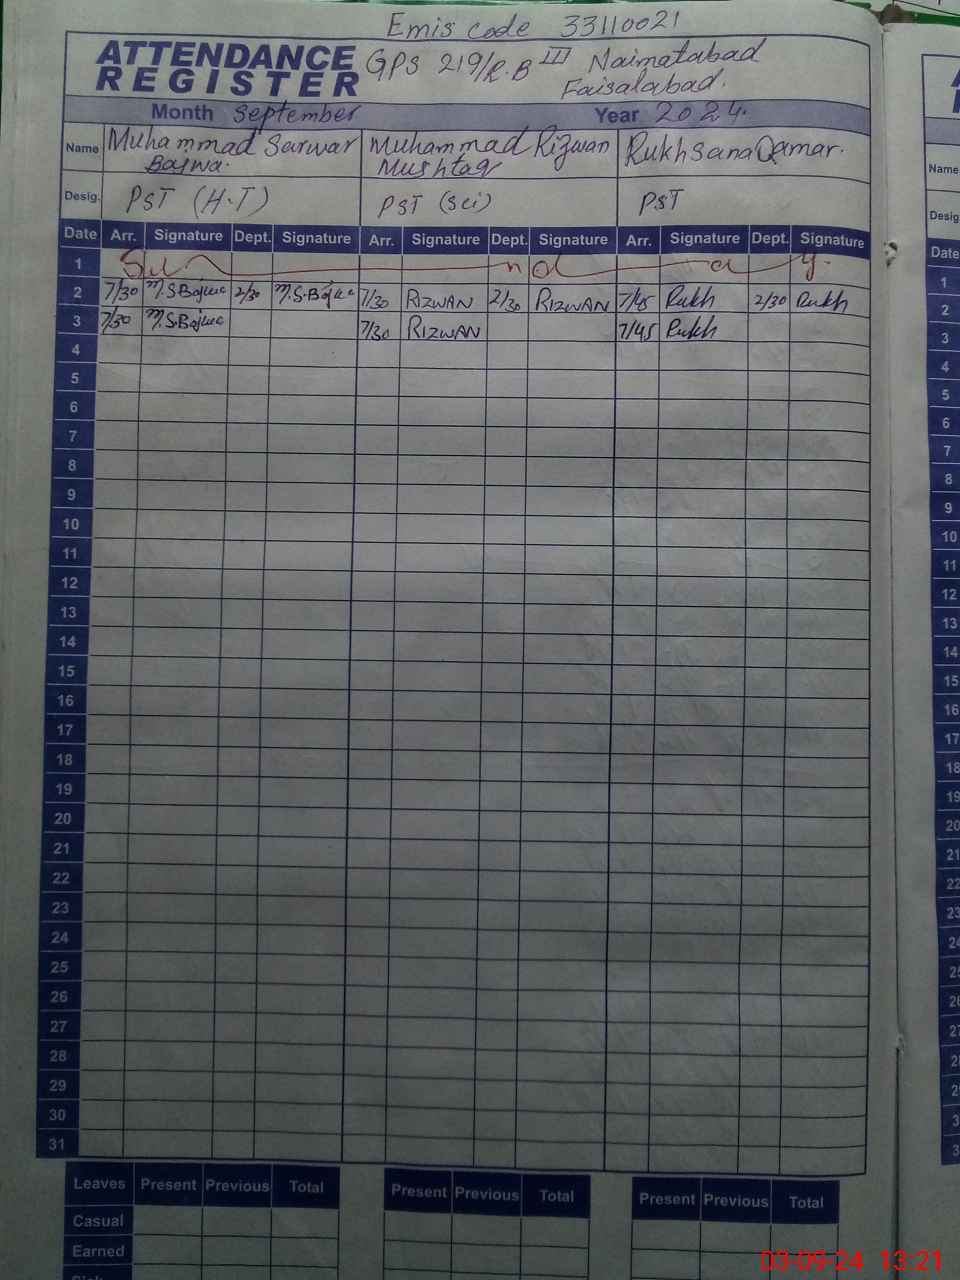 Emis code 33110021
ATTENDANCE REGISTER GPS 219/R.B III Naimatabad
Faisalabad.
Month September Year 2024.
Name Muhammad Sarwar Bajwa. Muhammad Rizwan Mushtaq Rukhsana Qamar.
Desig. PST (H.T) PST (Sci) PST
Date Arr. Signature Dept. Signature Arr. Signature Dept. Signature Arr. Signature Dept. Signature
1 Sunday
2 7/30 M.S.Bajwa 2/30 M.S.Bajwa 7/30 RIZWAN 2/30 RIZWAN 7/45 Rukh 2/30 Rukh
3 7/30 M.S.Bajwa 7/30 RIZWAN 7/45 Rukh
4
5
6
7
8
9
10
11
12
13
14
15
16
17
18
19
20
21
22
23
24
25
26
27
28
29
30
31
Leaves Present Previous Total Present Previous Total Present Previous Total
Casual
Earned
03-09-24 13:21
Name
Desig
Date
1
2
3
4
5
6
7
8
9
10
11
12
13
14
15
16
17
18
19
20
21
22
23